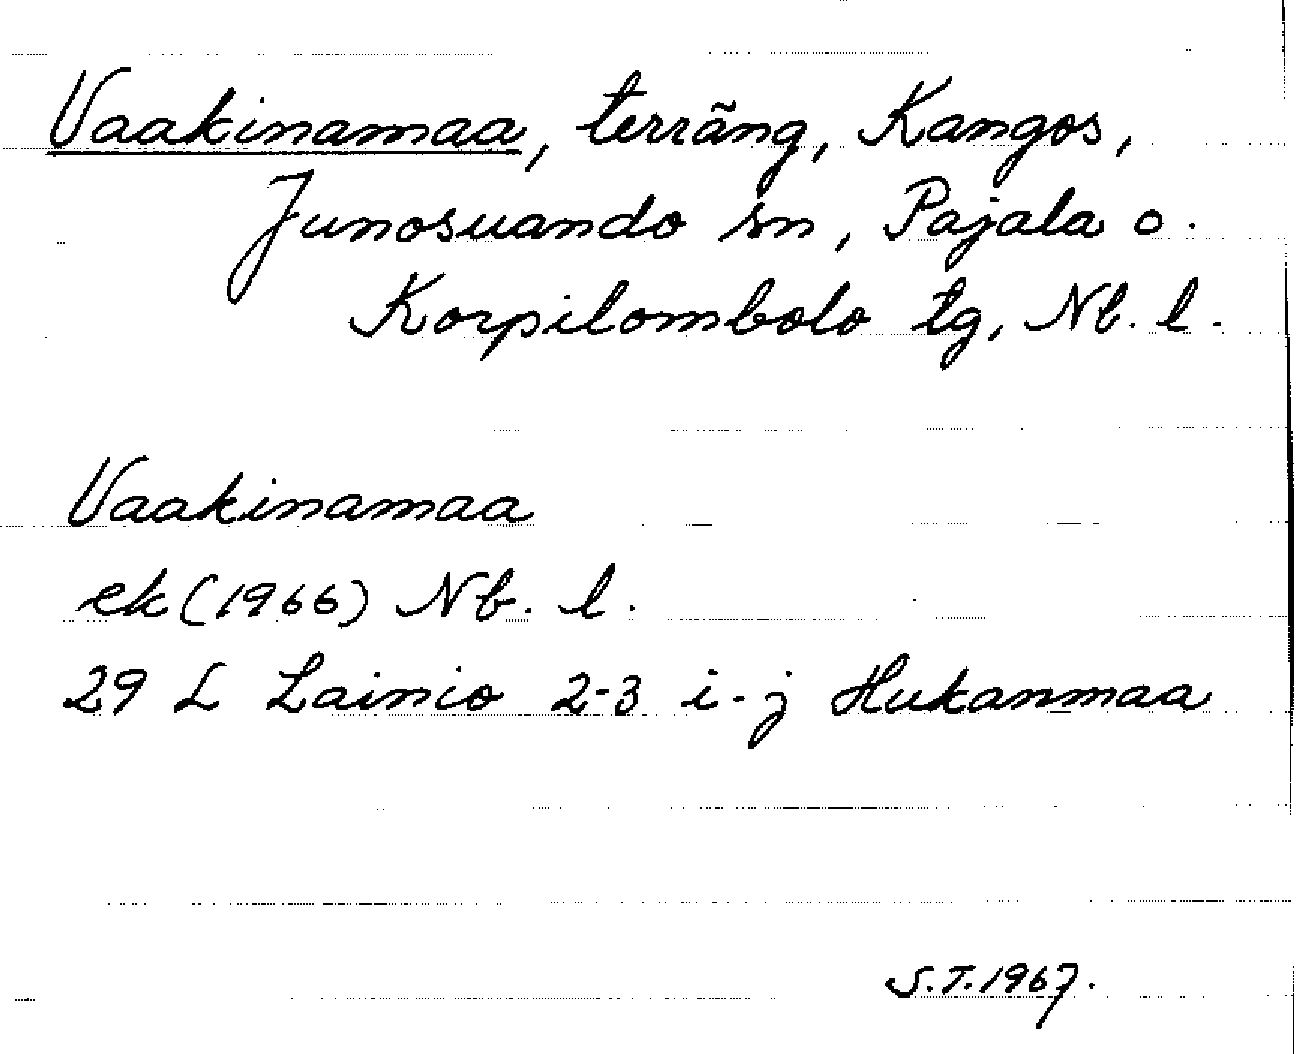 Vaakinamaa, terräng, Kangos,
Junosuando sn, Pajala o.
Korpilombolo tg, Nb. l.
Vaakinamaa
ek (1966) Nb. l.
29 L Lainio 2-3 i-j Hukanmaa
S.T. 1967.